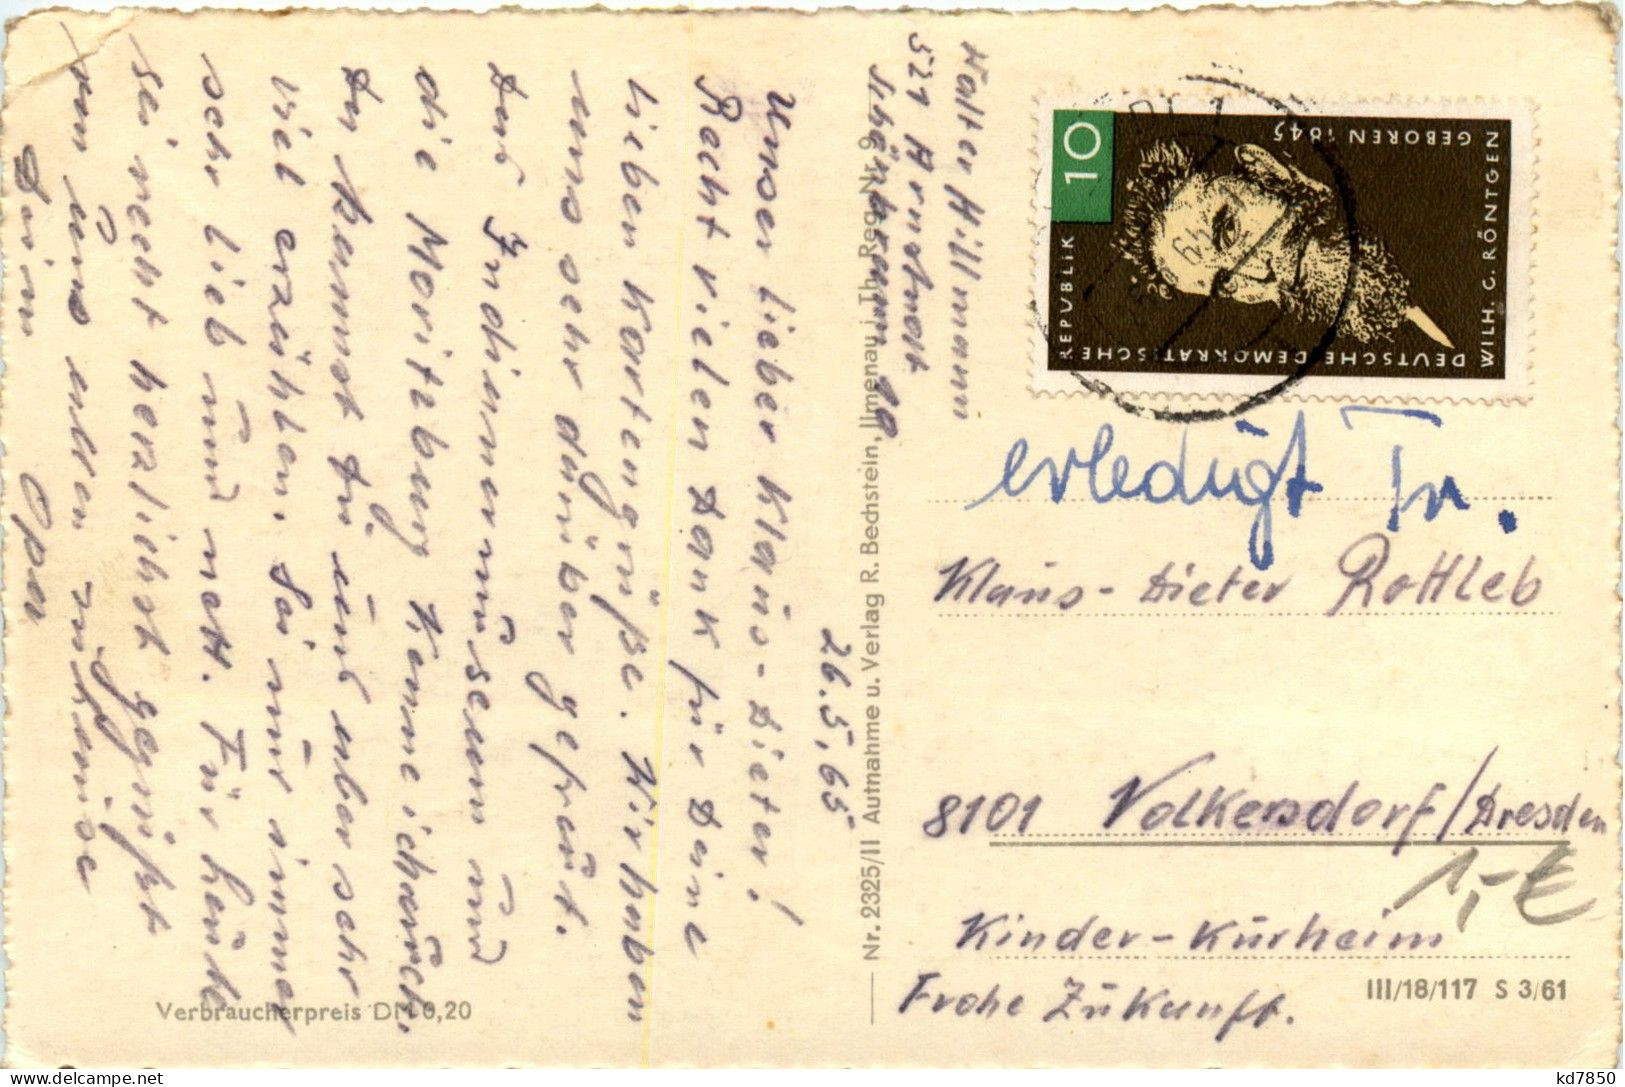 26.5.65
Unser lieber Klaus-Dieter!
Recht vielen Dank für Deine
lieben Kartengrüße. Wir haben
uns sehr darüber gefreut.
Das Indianermuseum und
die Moritzburg kenne ich auch.
Du kannst Du uns aber sehr
viel erzählen. Sei nur immer
sehr lieb und nett. Für heute
sei recht herzlichst gegrüßt
von uns allen zuhause
Dein Opa
Walter Hillmann
521 Arnstadt
Schönbrunn 10
Nr. 2325/II Aufnahme u. Verlag R. Bechstein, Ilmenau i. Th. Reg.-Nr. 9
Verbraucherpreis DM 0,20
10
DEUTSCHE DEMOKRATISCHE
REPUBLIK
WILH. C. RÖNTGEN
GEBOREN 1845
erledigt
Klaus-Dieter Rottleb
8101 Volkersdorf/Dresden
1,-€
Kinder-Kurheim
Frohe Zukunft.
III/18/117 S 3/61
the-collectibles-marketplace.net
kd7850